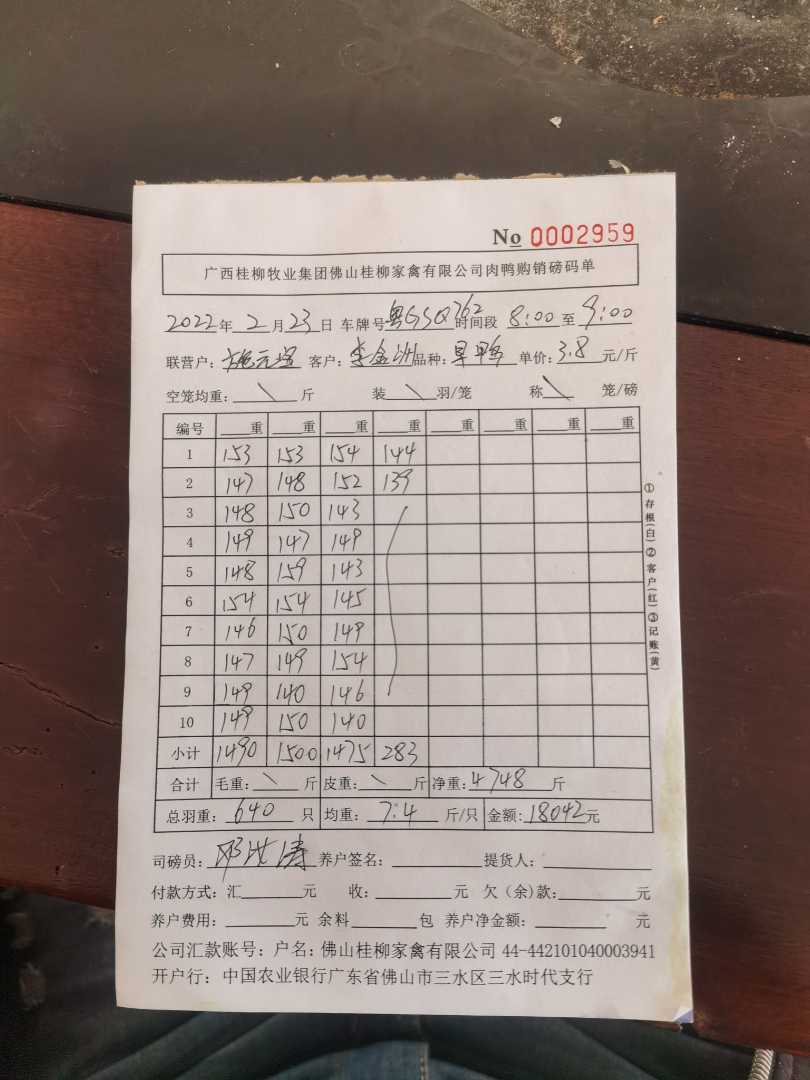 No 0002959
广西桂柳牧业集团佛山桂柳家禽有限公司肉鸭购销磅码单
2022年 2月 23日 车牌号 粤GSQ762 时间段 8:00 至 9:00
联营户: 施元 客户: 李金洲 品种: 单价: 3.8 元/斤
空笼均重: \ 斤 装 \ 羽/笼 称 \ 笼/磅
编号 重 重 重 重 重 重 重 重
1 153 153 154 144
2 147 148 152 139
3 148 150 143
4 149 147 149
5 148 159 143
6 154 154 145
7 146 150 149
8 147 149 154
9 149 140 146
10 149 150 140
小计 1490 1500 1475 283
合计 毛重: \ 斤 皮重: \ 斤 净重: 4748 斤
总羽重: 640 只 均重: 7.4 斤/只 金额: 18042元
司磅员: 邓 涛 养户签名: 提货人:
付款方式: 汇 元 收: 元 欠(余)款: 元
养户费用: 元 余料 包 养户净金额: 元
公司汇款账号: 户名: 佛山桂柳家禽有限公司 44-442101040003941
开户行: 中国农业银行广东省佛山市三水区三水时代支行
①存根(白)②客户(红)③记账(黄)